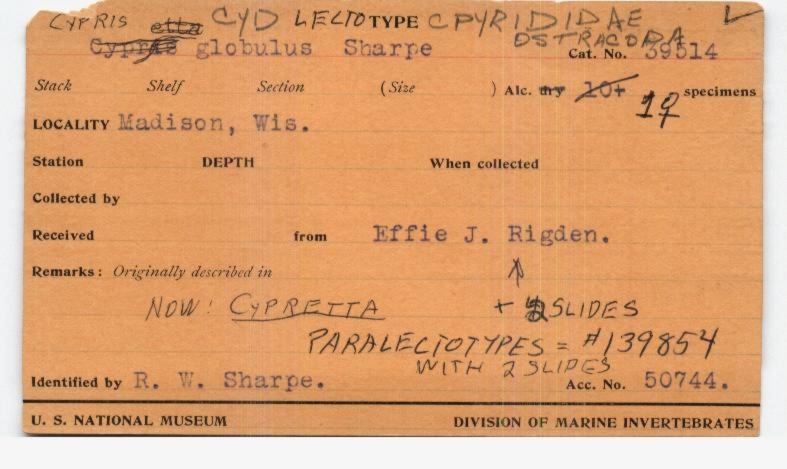 CYPRIS etta CYD LECTOTYPE CPYRIDIDAE
OSTRACODA
Cypris globulus Sharpe Cat. No. 39514
Stack Shelf Section (Size ) Alc. dry 10+ 1♀ specimens
LOCALITY Madison, Wis.
Station DEPTH When collected
Collected by
Received from Effie J. Rigden.
Remarks: Originally described in ↑
NOW: CYPRETTA + 2 SLIDES
PARALECTOTYPES = #139854
WITH 2 SLIDES
Identified by R. W. Sharpe. Acc. No. 50744.
U. S. NATIONAL MUSEUM DIVISION OF MARINE INVERTEBRATES